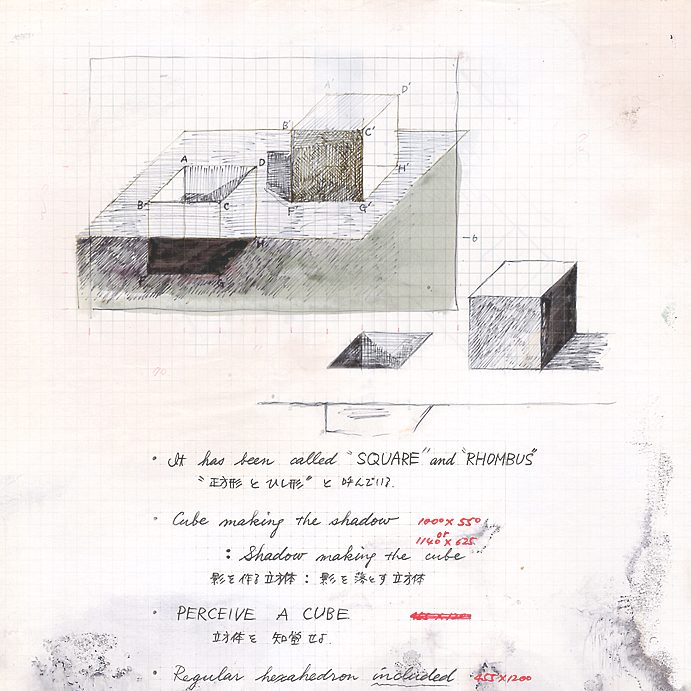 A' D'
B' C'
A D H'
B C F' G'
H 6
F G
• It has been called "SQUARE" and "RHOMBUS"
"正方形 と ひし形" と 呼んでいる.
• Cube making the shadow 1000 X 550
or
1140 X 625
: Shadow making the cube
影を作る立方体 : 影を落とす立方体
• PERCEIVE A CUBE
立方体を 知覚せよ.
• Regular hexahedron included 455 X 1200